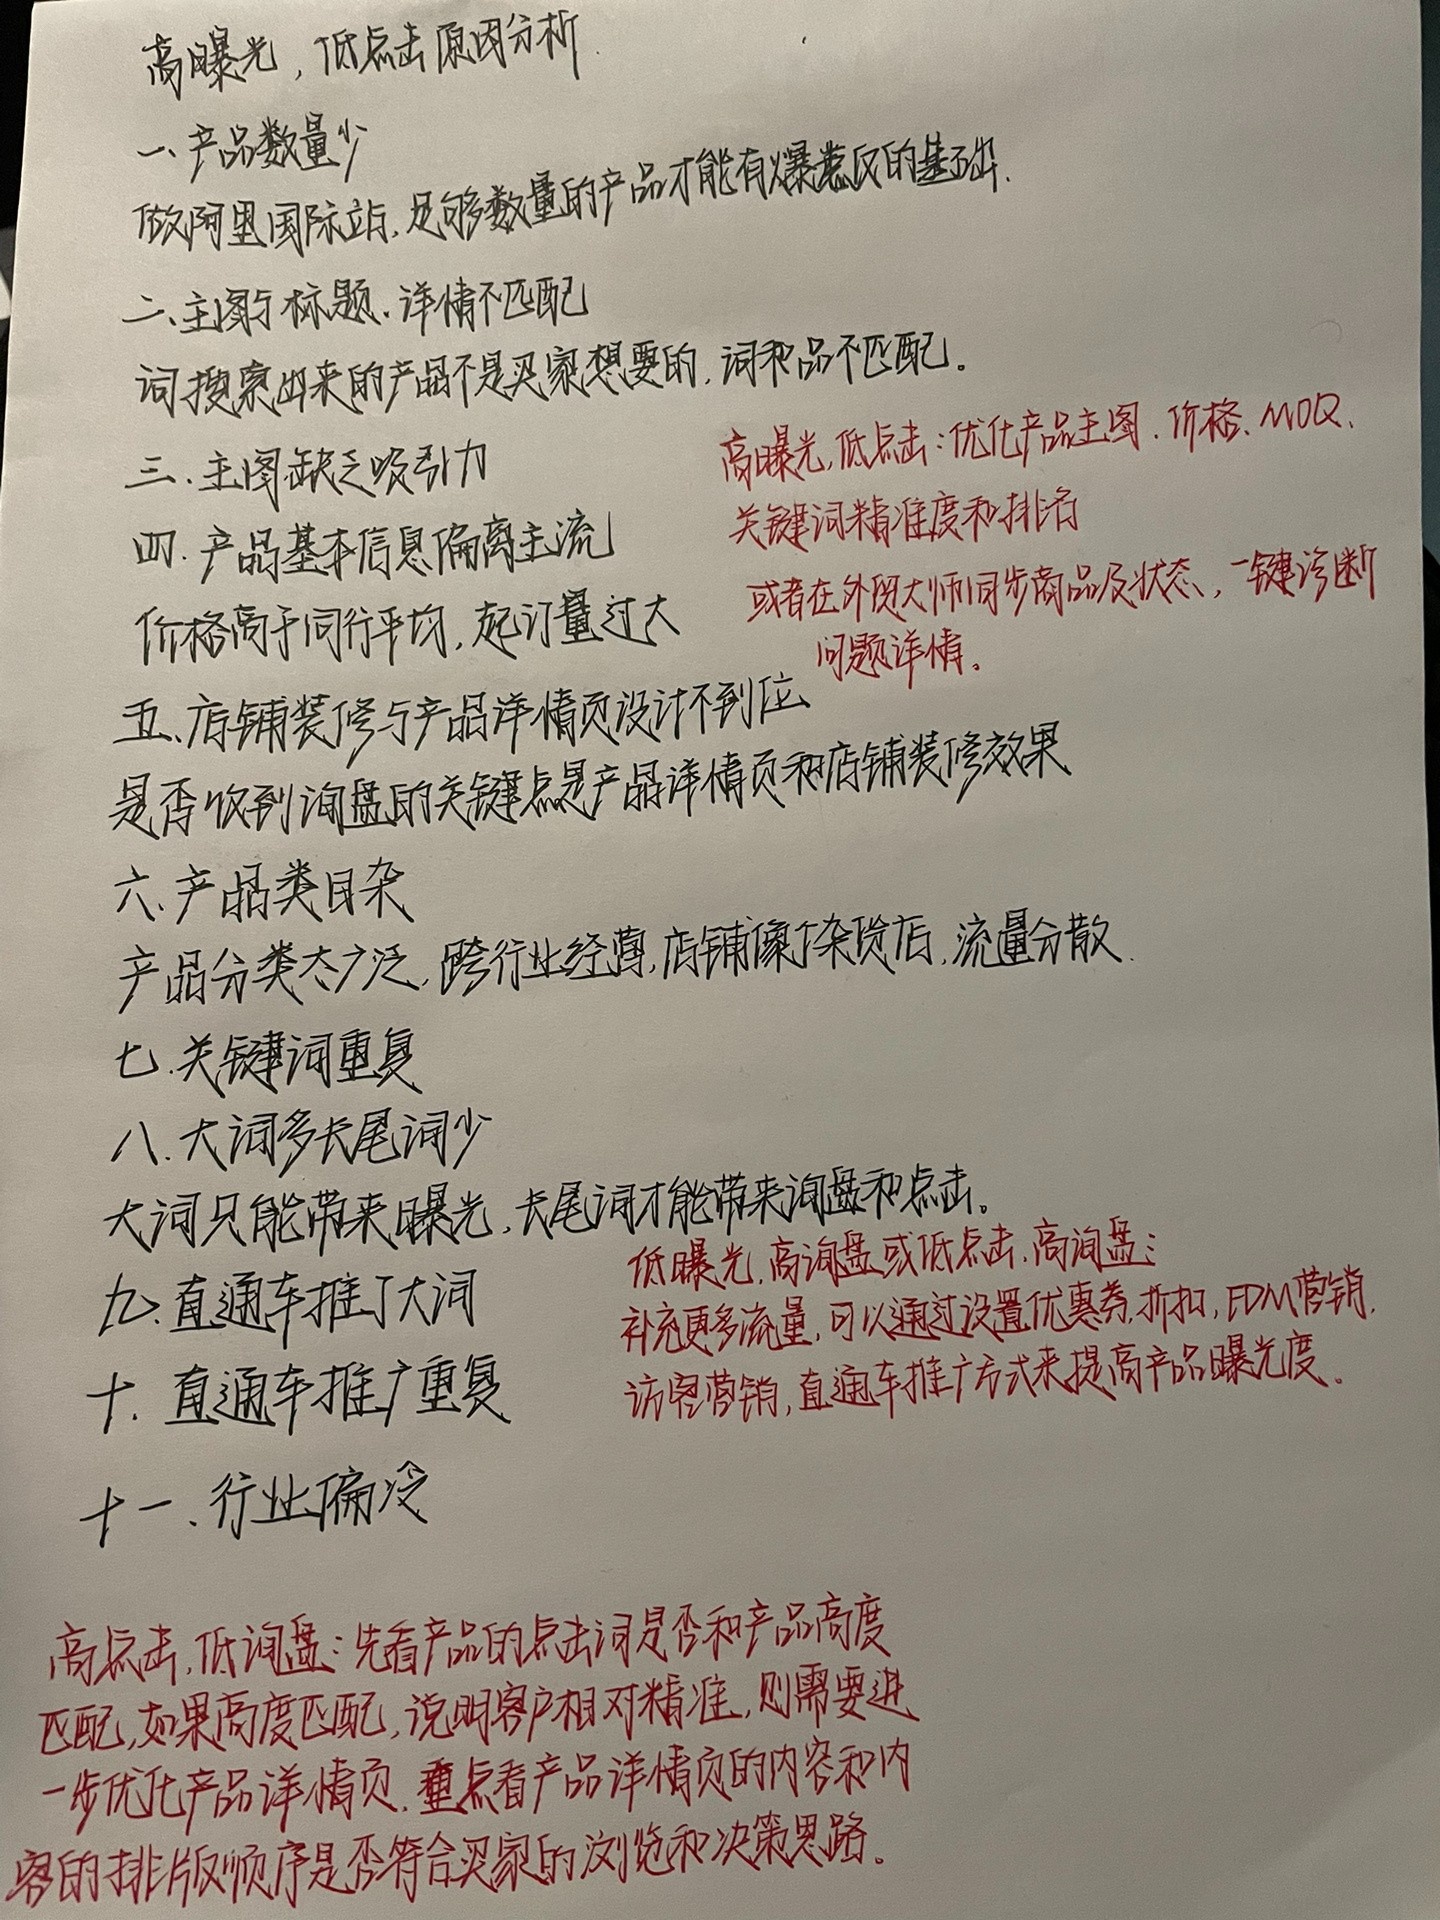 高曝光，低点击原因分析.
一、产品数量少
做阿里国际站，足够数量的产品才能有爆款的基础.
二、主图与标题、详情不匹配
词搜索出来的产品不是买家想要的，词和品不匹配。
三、主图缺乏吸引力
高曝光，低点击：优化产品主图、价格、MOQ、
四、产品基本信息偏离主流
关键词精准度和排名
或者在外贸大师同步商品及状态，一键诊断
价格高于同行平均，起订量过大
问题详情。
五、店铺装修与产品详情页设计不到位
是否收到询盘的关键点是产品详情页和店铺装修效果
六、产品类目杂
产品分类太广泛，跨行业经营，店铺像个杂货店，流量分散.
七、关键词重复
八、大词多长尾词少
大词只能带来曝光，长尾词才能带来询盘和点击。
低曝光，高询盘或低点击，高询盘：
九、直通车推了大词
补充更多流量，可以通过设置优惠券，折扣，EDM营销，
访客营销，直通车推广方式来提高产品曝光度。
十、直通车推广重复
十一、行业偏冷
高点击，低询盘：先看产品的点击词是否和产品高度
匹配，如果高度匹配，说明客户相对精准，则需要进
一步优化产品详情页，重点看产品详情页的内容和内
容的排版顺序是否符合买家的浏览和决策思路。